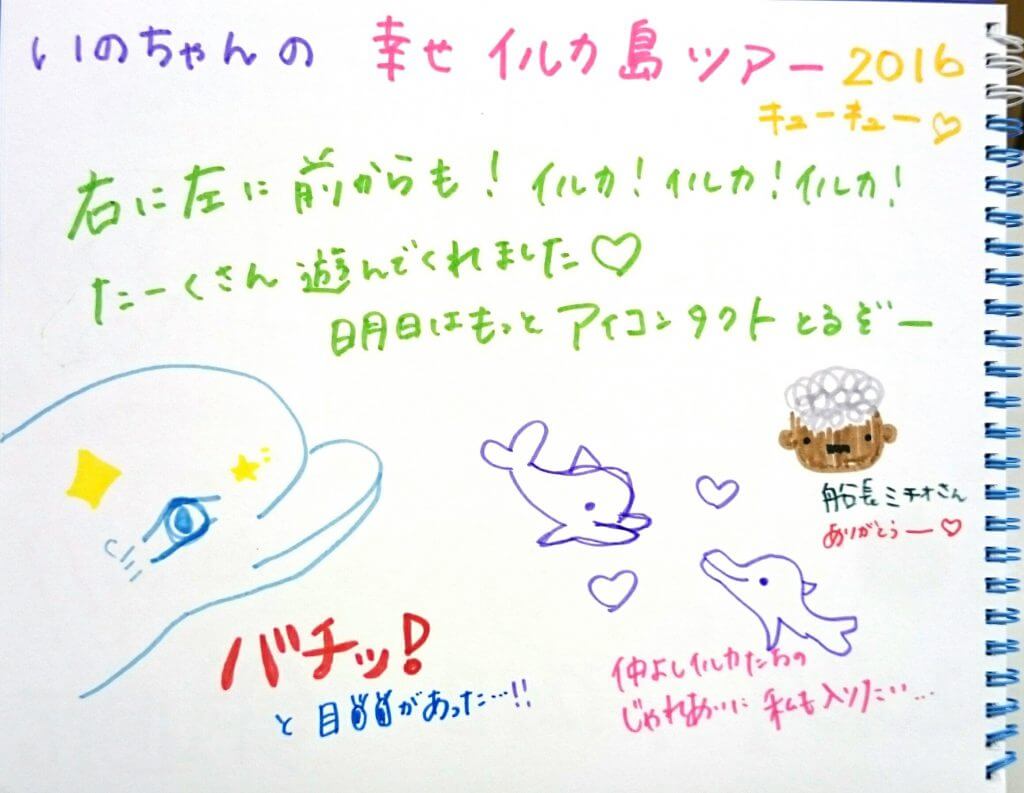 いのちゃんの 幸せイルカ島ツアー 2016
キューキュー♡
右に左に前からも！イルカ！イルカ！イルカ！
たーくさん遊んでくれました♡
明日はもっとアイコンタクトとるぞー
船長ミチオさん
ありがとうー♡
バチッ！
と目が あった…!!
仲よしイルカたちの
じゃれあいに私も入りたい…